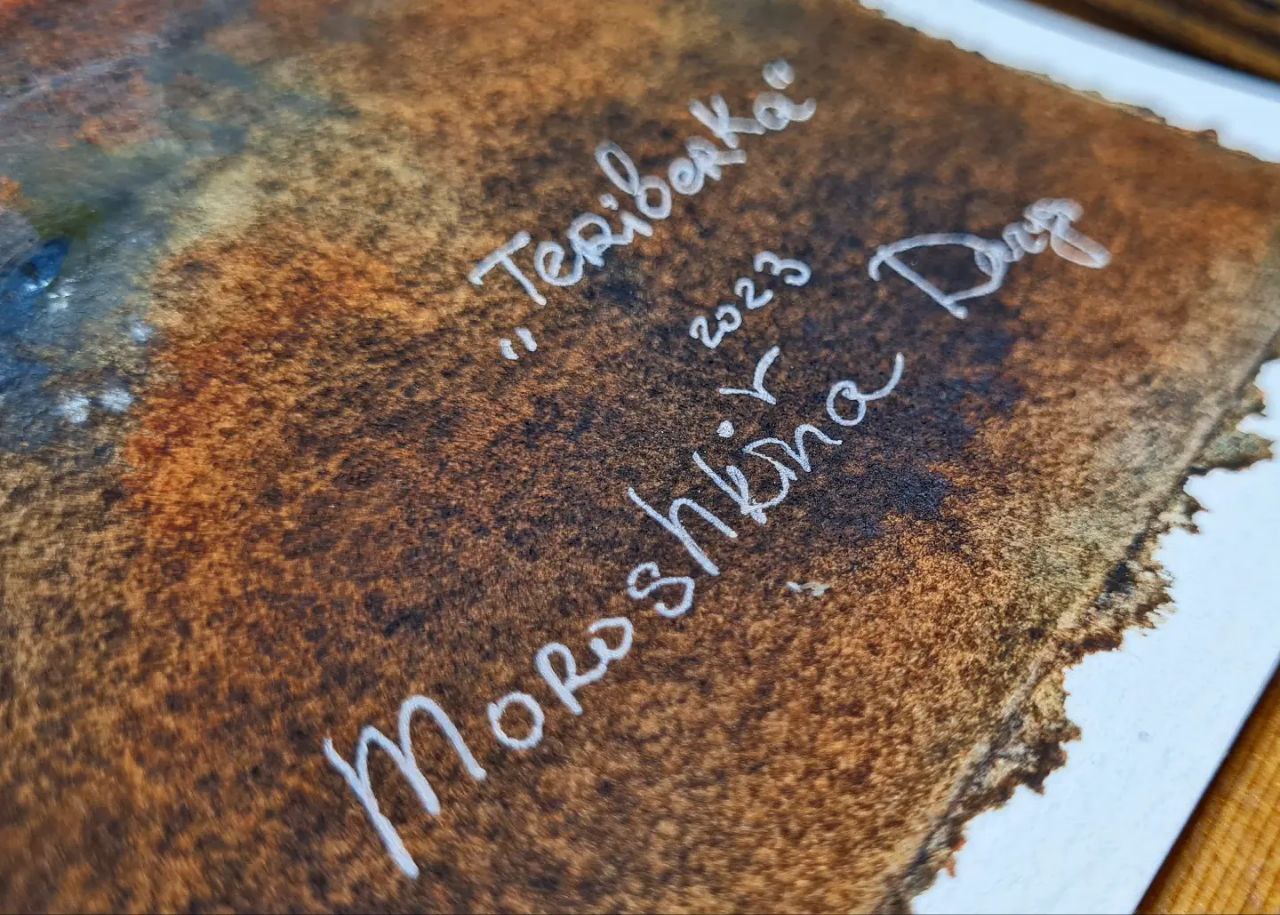 „Teriberka“
2023
Moroshkina